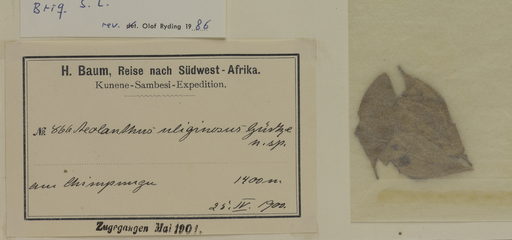 Briq. s. l.
rev. det. Olof Ryding 1986
H. Baum, Reise nach Südwest-Afrika.
Kunene-Sambesi-Expedition.
No. 866 Aeolanthus uliginosus Gürke
n. sp.
am Chimpumpu 1400 m.
25. IV. 1900.
Zugegangen Mai 1901.